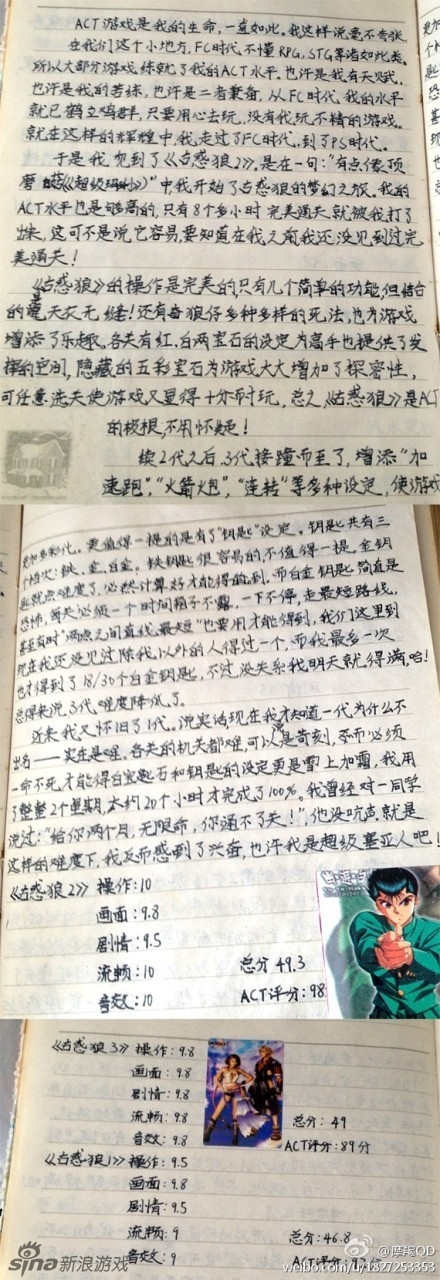 ACT游戏是我的生命，一直如此。我这样说毫不夸张。
在我们这个小地方，FC时代不懂RPG，STG等诸如此类。
所以大部分游戏练就了我的ACT水平，也许是我有天赋，
也许是我的苦练，也许是二者兼备，从FC时代，我的水平
就已鹤立鸡群，只要用心去玩，没有我玩不精的游戏。
就在这样的辉煌中，我走过了FC时代，到了PS时代。
于是我见到了《古惑狼2》，是在一句：“有点像顶
磨菇《超级玛利》”中我开始了古惑狼的梦幻之旅。我的
ACT水平也是够高的，只有8个多小时完美通关就被我打了
出来，这可不是说它容易，要知道在我之前我还没见到过完
美通关！
《古惑狼》的操作是完美的，只有几个简单的功能，但结合
的是天衣无缝！还有古狼仔多种多样的死法，也为游戏
增添了乐趣。各关有红、白两宝石的设定为高手也提供了发
挥的空间，隐藏的五彩宝石为游戏大大增加了探密性，
可任意选关使游戏又显得十分耐玩，总之，《古惑狼》是ACT
的极限，不用怀疑！
续2代之后，3代接踵而至了，增添“加
速跑”，“火箭炮”，“连转”等多种设定，使游戏
更加多彩化。更值得一提的是有了“钥匙”设定。钥匙共有三
个档次：铁、金、白金。铁钥匙很容易的，不值得一提，金钥
匙就点难度了，必然计算好才能得的到，而白金钥匙简直是
恐怖，每关必须一个时间箱子不露，一下不停，走最短路线，
甚至有时“两点之间直线最短”也要用才能得到，我们这里到
现在我还没见过除我以外的人得过一个，而我最多一次
也才得到了18/30个白金钥匙，不过没关系我明天就得满，哈！
总得来说，3代难度降低了。
近来我又怀旧了1代。说实话现在我才知道一代为什么不
出名——实在是难。各关的机关都难，可谓是苛刻，而必须
一命不死才能得白宝石和钥匙的设定更是雪上加霜，我用
了整整2个星期，大约20个小时才完成了100%。我曾经对一同学
说过：“给你两个月，无限命，你通不了关！”，他没吭声，就是
这样的难度下，我反而感到了兴奋，也许我是超级赛亚人吧！
《古惑狼2》 操作：10
画面：9.8
剧情：9.5
流畅：10 总分 49.3
音效：10 ACT评分：98
《古惑狼3》 操作：9.8
画面：9.8
剧情：9.8
流畅：9.8 总分：49
音效：9.8 ACT评分：89分
《古惑狼1》 操作：9.5
画面：9.8
剧情：9.5
流畅：9 总分：46.8
音效：9 ACT评分：92分
sina新浪游戏
@摩轲QD
weibo.com/u/1827253353